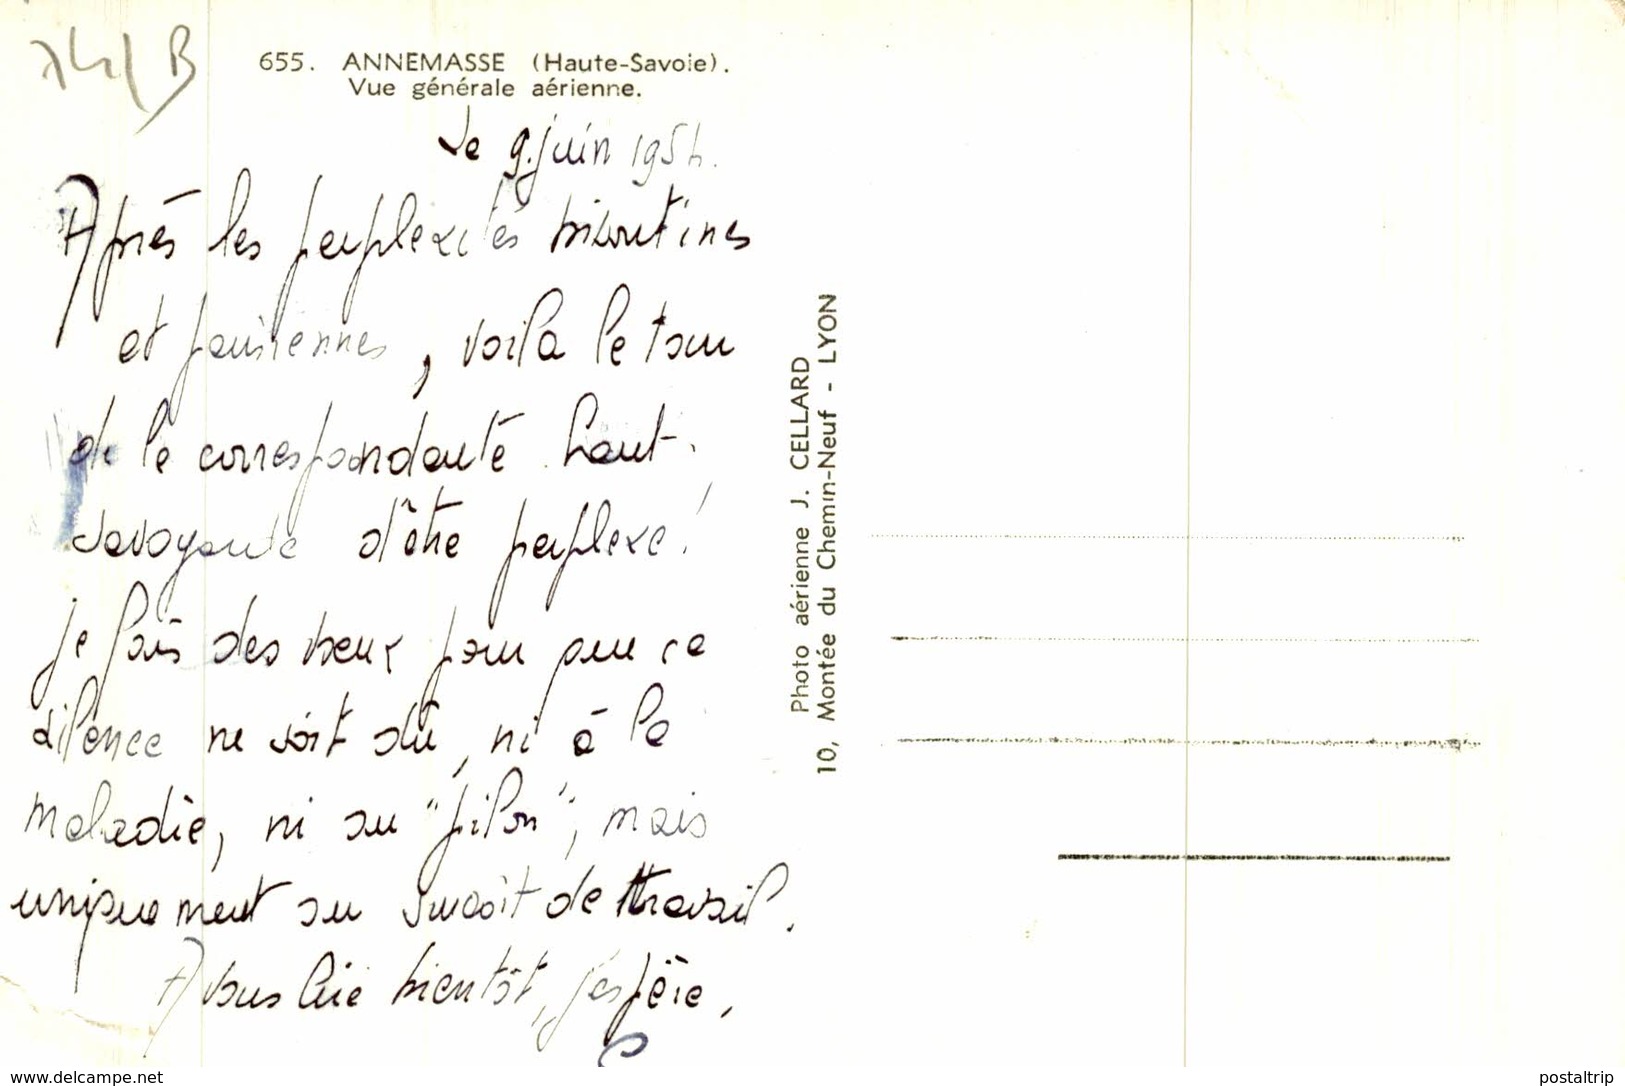 74/B
655. ANNEMASSE (Haute-Savoie).
Vue générale aérienne.
Le 9 juin 1954.
Après les perplexités bisontines
et parisiennes, voilà le tour
de la correspondante haut-
savoyarde d'être perplexe!
je fais des voeux pour que ce
silence ne soit dû, ni à la
maladie, ni au "filon", mais
uniquement au surcroît de travail.
A vous lire bientôt, j'espère,
Photo aérienne J. CELLARD
10, Montée du Chemin-Neuf - LYON
www.delcampe.net
postaltrip